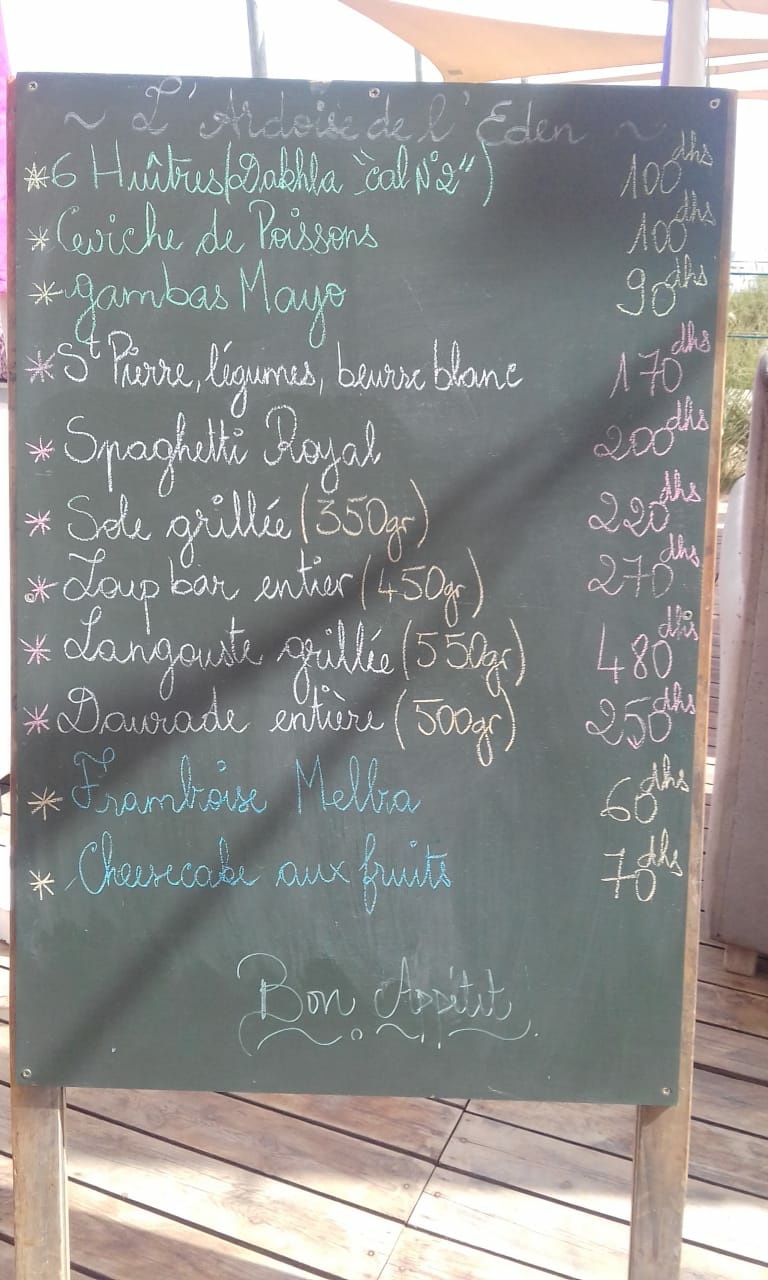 ~ L'Ardoise de l'Eden ~
*6 Huîtres (Dakhla "cal N°2") 100 dhs
* Ceviche de Poissons 100 dhs
* gambas Mayo 90 dhs
* St Pierre, légumes, beurre blanc 170 dhs
* Spaghetti Royal 200 dhs
* Sole grillée (350gr) 220 dhs
* Loup bar entier (450gr) 270 dhs
* Langouste grillée (550gr) 480 dhs
* Daurade entière (500gr) 250 dhs
* Framboise Melba 60 dhs
* Cheesecake aux fruits 70 dhs
Bon Appétit